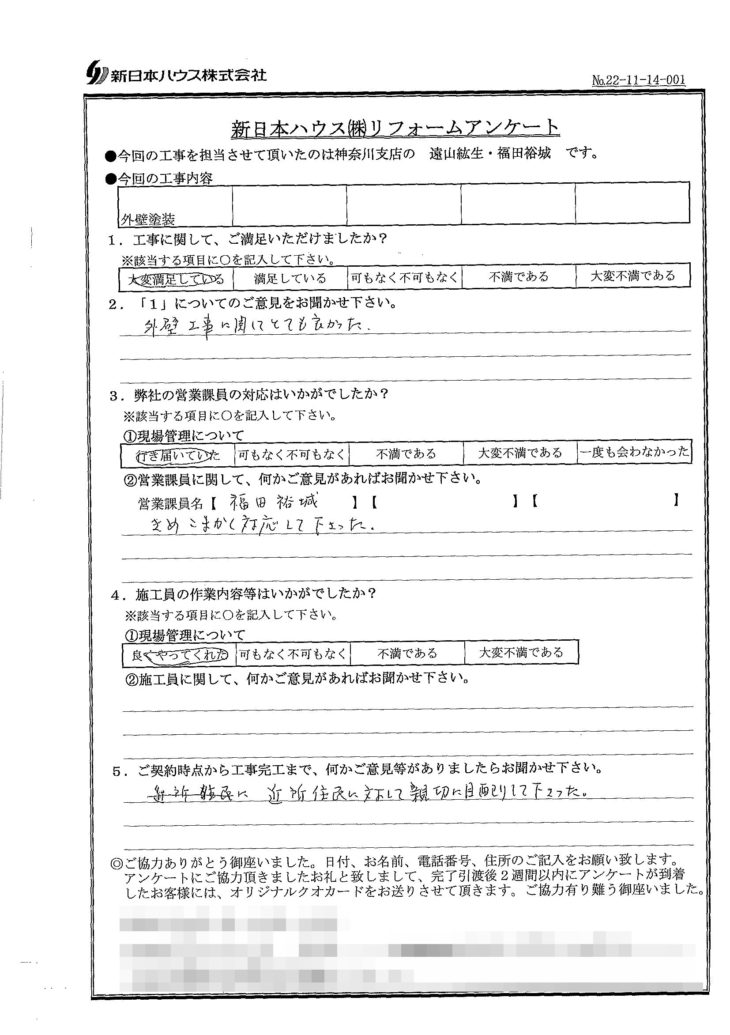 新日本ハウス株式会社
No.22-11-14-001
新日本ハウス㈱リフォームアンケート
●今回の工事を担当させて頂いたのは神奈川支店の 遠山紘生・福田裕城 です。
●今回の工事内容
外壁塗装
1．工事に関して、ご満足いただけましたか？
※該当する項目に○を記入して下さい。
大変満足している 満足している 可もなく不可もなく 不満である 大変不満である
2．「1」についてのご意見をお聞かせ下さい。
外壁工事に関してとても良かった.
3．弊社の営業課員の対応はいかがでしたか？
※該当する項目に○を記入して下さい。
①現場管理について
行き届いていた 可もなく不可もなく 不満である 大変不満である 一度も会わなかった
②営業課員に関して、何かご意見があればお聞かせ下さい。
営業課員名【 福田裕城 】【 】【 】
きめこまかく対応して下さった.
4．施工員の作業内容等はいかがでしたか？
※該当する項目に○を記入して下さい。
①現場管理について
良くやってくれた 可もなく不可もなく 不満である 大変不満である
②施工員に関して、何かご意見があればお聞かせ下さい。
5．ご契約時点から工事完工まで、何かご意見等がありましたらお聞かせ下さい。
近所住民に対して親切に目配りして下さった。
◎ご協力ありがとう御座いました。日付、お名前、電話番号、住所のご記入をお願い致します。
アンケートにご協力頂きましたお礼と致しまして、完了引渡後2週間以内にアンケートが到着
したお客様には、オリジナルクオカードをお送りさせて頂きます。ご協力有り難う御座いました。